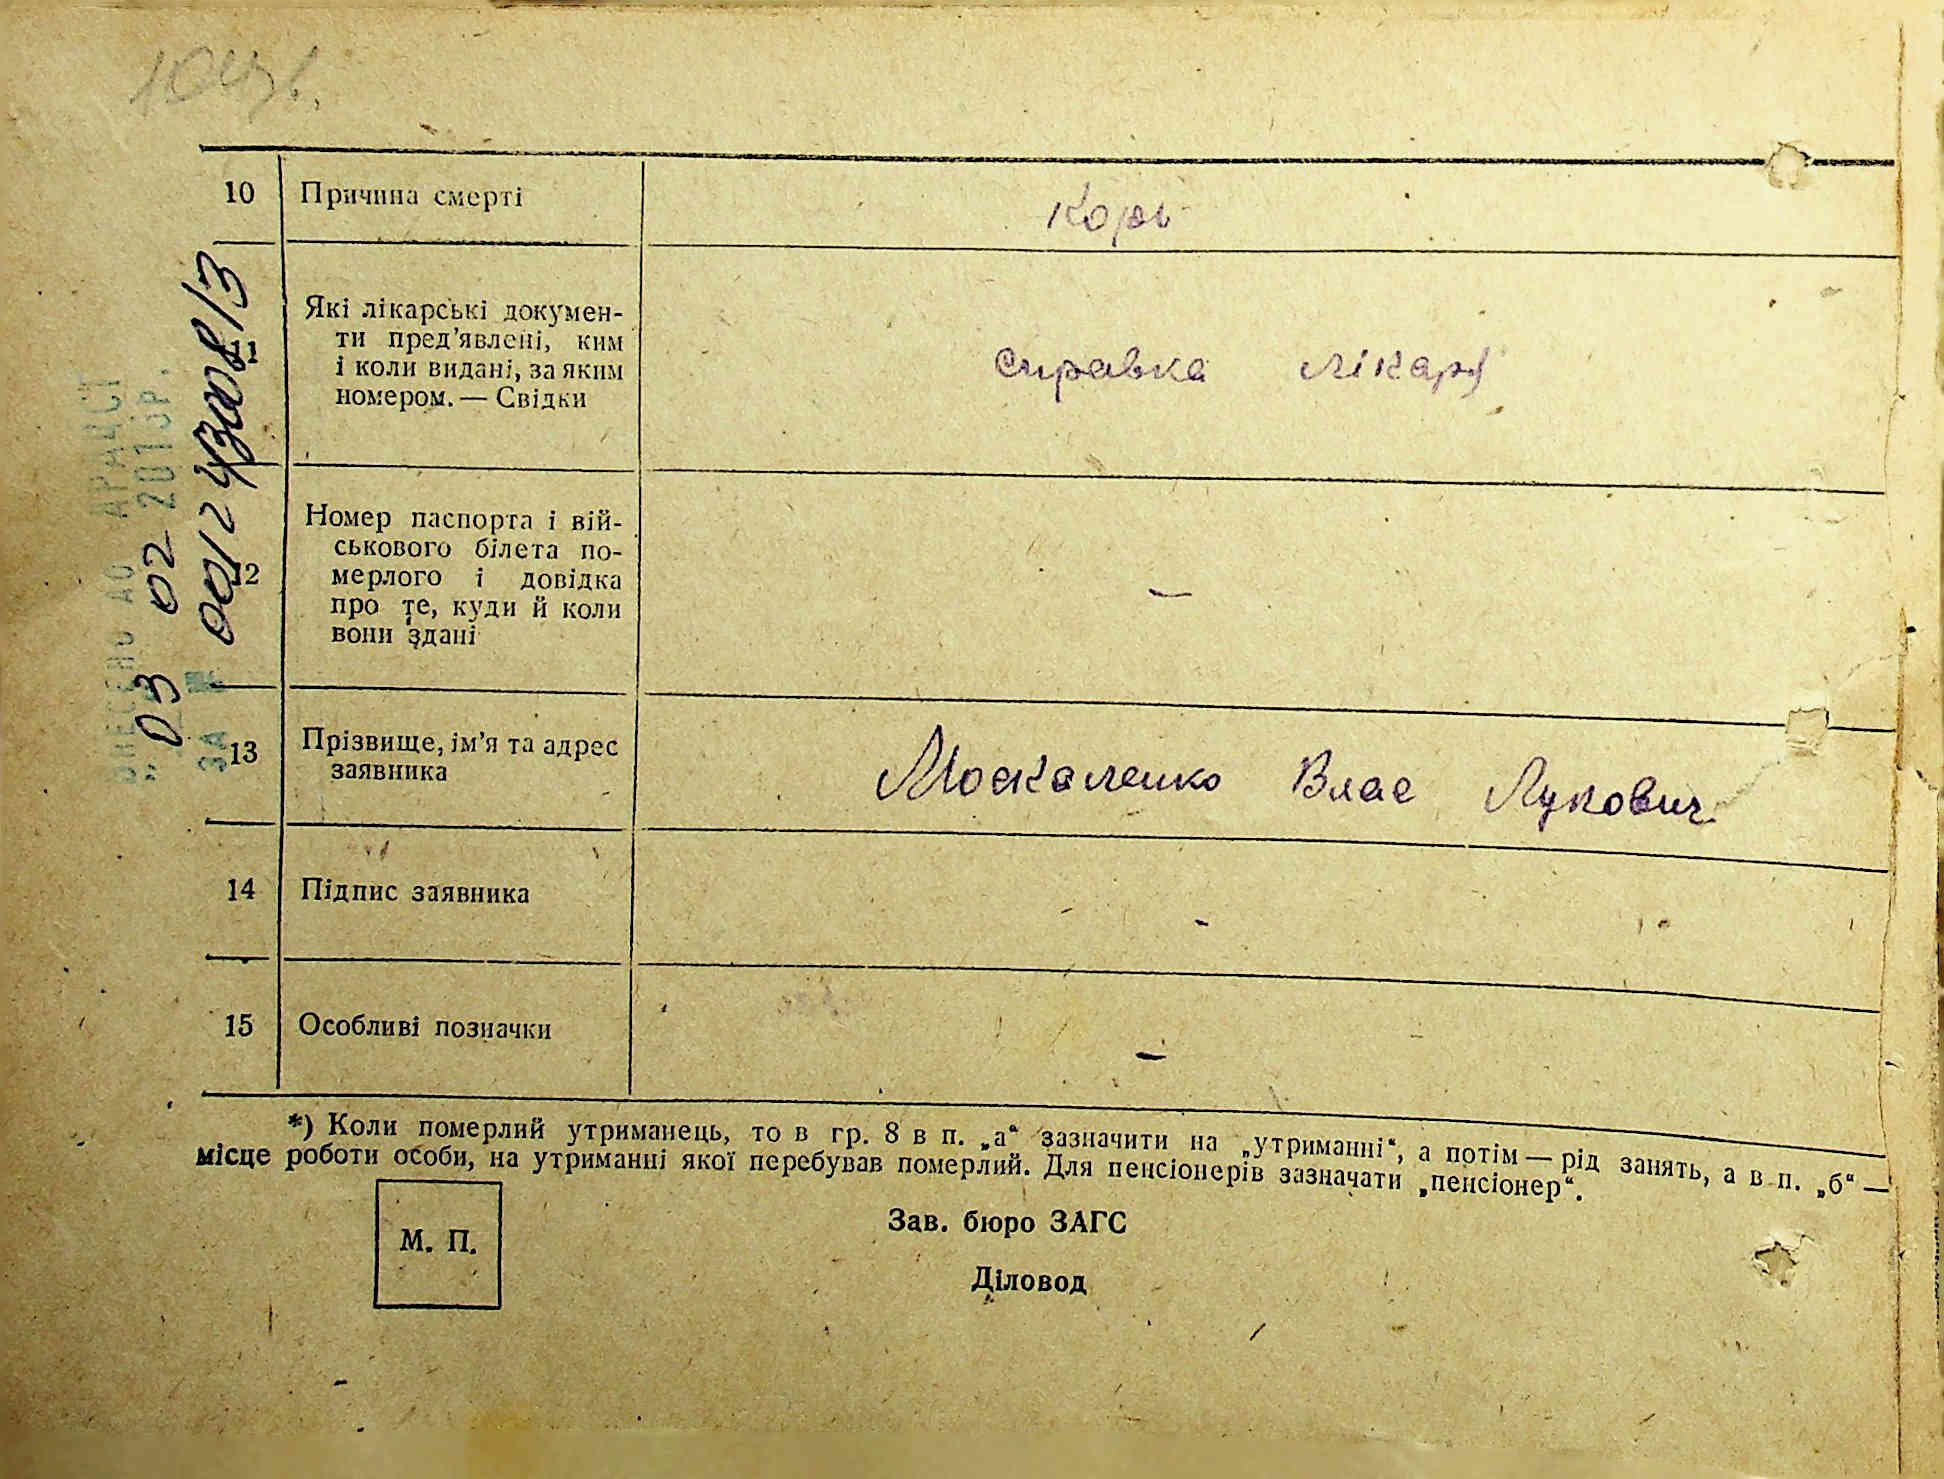 10
Причина смерті
Корь
Які лікарські докумен-
ти пред’явлені, ким
і коли видані, за яким
номером. — Свідки
справка лікаря
12
Номер паспорта і вій-
ськового білета по-
мерлого і довідка
про те, куди й коли
вони здані
—
13
Прізвище, ім’я та адрес
заявника
Москаленко Влас Лукович
14
Підпис заявника
-
15
Особливі позначки
—
*) Коли померлий утриманець, то в гр. 8 в п. „а“ зазначити на „утриманні“, а потім — рід занять, а в п. „б“ —
місце роботи особи, на утриманні якої перебував померлий. Для пенсіонерів зазначати „пенсіонер“.
М. П.
Зав. бюро ЗАГС
Діловод
ВНЕСЕНО ДО ДРАЦСГ
„ 03 02 2013р.
ЗА №